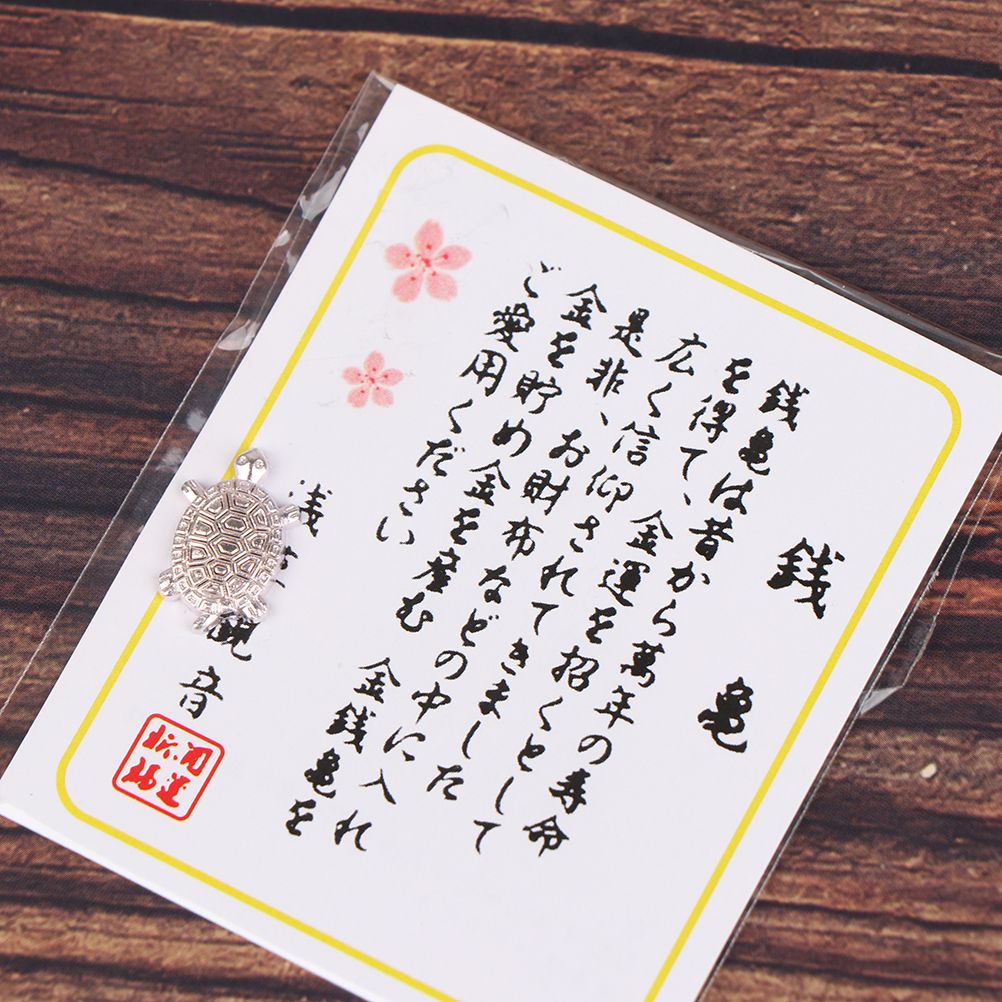 銭亀
銭亀は昔から萬年の寿命
を得て、金運を招くとして
広く信仰されてきました
是非、お財布などの中に入れ
金を貯め金を産む 金銭亀を
ご愛用ください
浅 観音